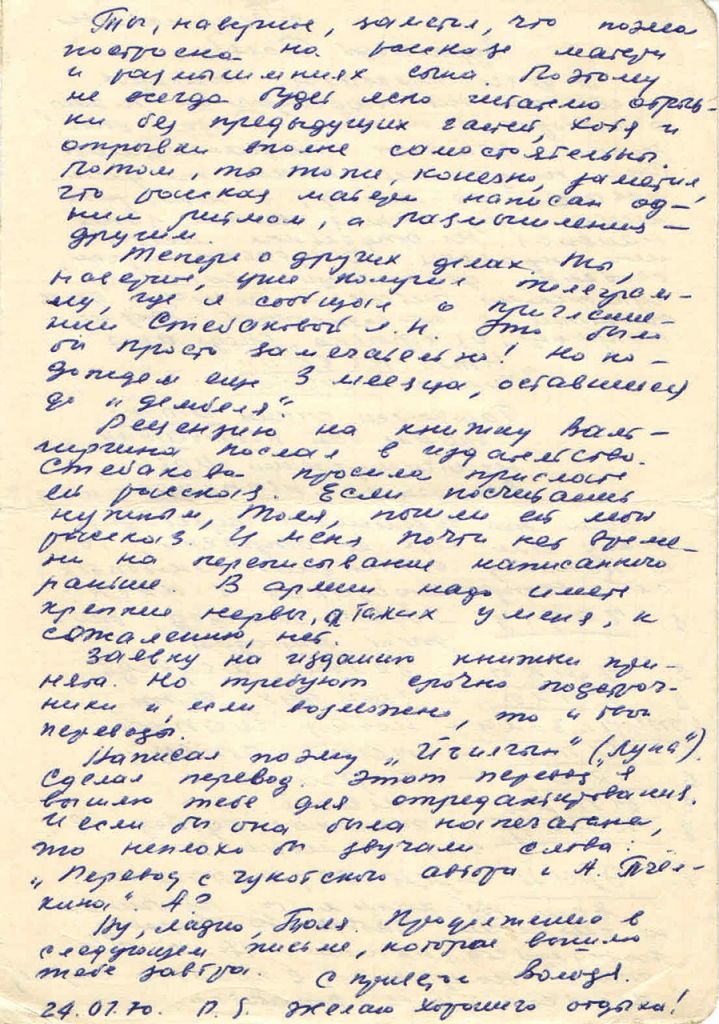 Ты, наверное, заметил, что поэма
построена на рассказе матери
и размышлениях сына. Поэтому
не всегда будет ясно читателю отрыв-
ки без предыдущих частей, хотя и
отрывки вполне самостоятельны.
Потом, ты тоже, конечно, заметил,
что рассказ матери написан од-
ним ритмом, а размышления –
другим.
Теперь о других делах. Ты,
наверное, уже получил телеграм-
му, где я сообщал о приглаше-
нии Стебаковой Л.Н. Это было
бы просто замечательно! Но по-
дождем еще 3 месяца, оставшиеся
до „дембеля“.
Рецензию на книжку Валь-
гиргина послал в издательство.
Стебакова просила прислать
ей рассказ. Если посчитаешь
нужным, Толя, пошли ей мой
рассказ. У меня почти нет време-
ни на переписывание написанного
раньше. В армии надо иметь
крепкие нервы, а таких у меня, к
сожалению, нет.
Заявку на издание книжки при-
няли. Но требуют срочно подстроч-
ники и если возможно, то и
переводы.
Написал поэму „Йъилгын“ („Луна“).
Сделал перевод. Этот перевод я
вышлю тебе для отредактирования.
И если бы она была напечатана,
то неплохо бы звучали слова:
„Перевод с чукотского автора и А. Пчел-
кина“. А?
Ну, ладно, Толя. Продолжение в
следующем письме, которое вышлю
тебе завтра. С приветом Володя.
24.07.70. P.S. Желаю хорошего отдыха!